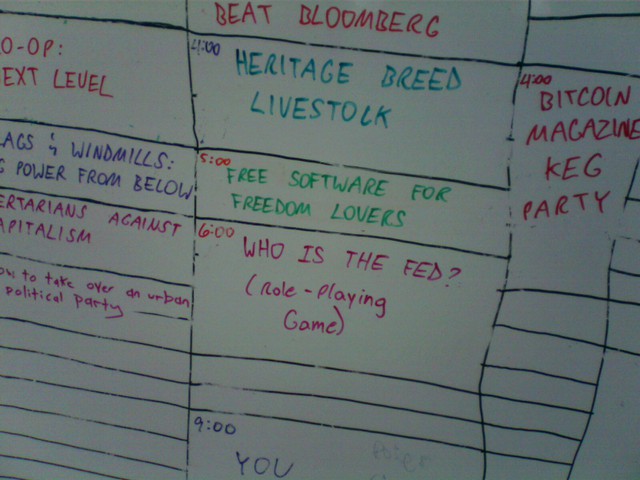 O-OP:
EXT LEVEL
LAGS & WINDMILLS:
G POWER FROM BELOW
ERTARIANS AGAINST
APITALISM
ow to take over an urban
political party
BEAT BLOOMBERG
4:00
HERITAGE BREED
LIVESTOCK
5:00
FREE SOFTWARE FOR
FREEDOM LOVERS
6:00
WHO IS THE FED?
(Role-Playing
Game)
9:00
YOU
4:00
BITCOIN
MAGAZINE
KEG
PARTY